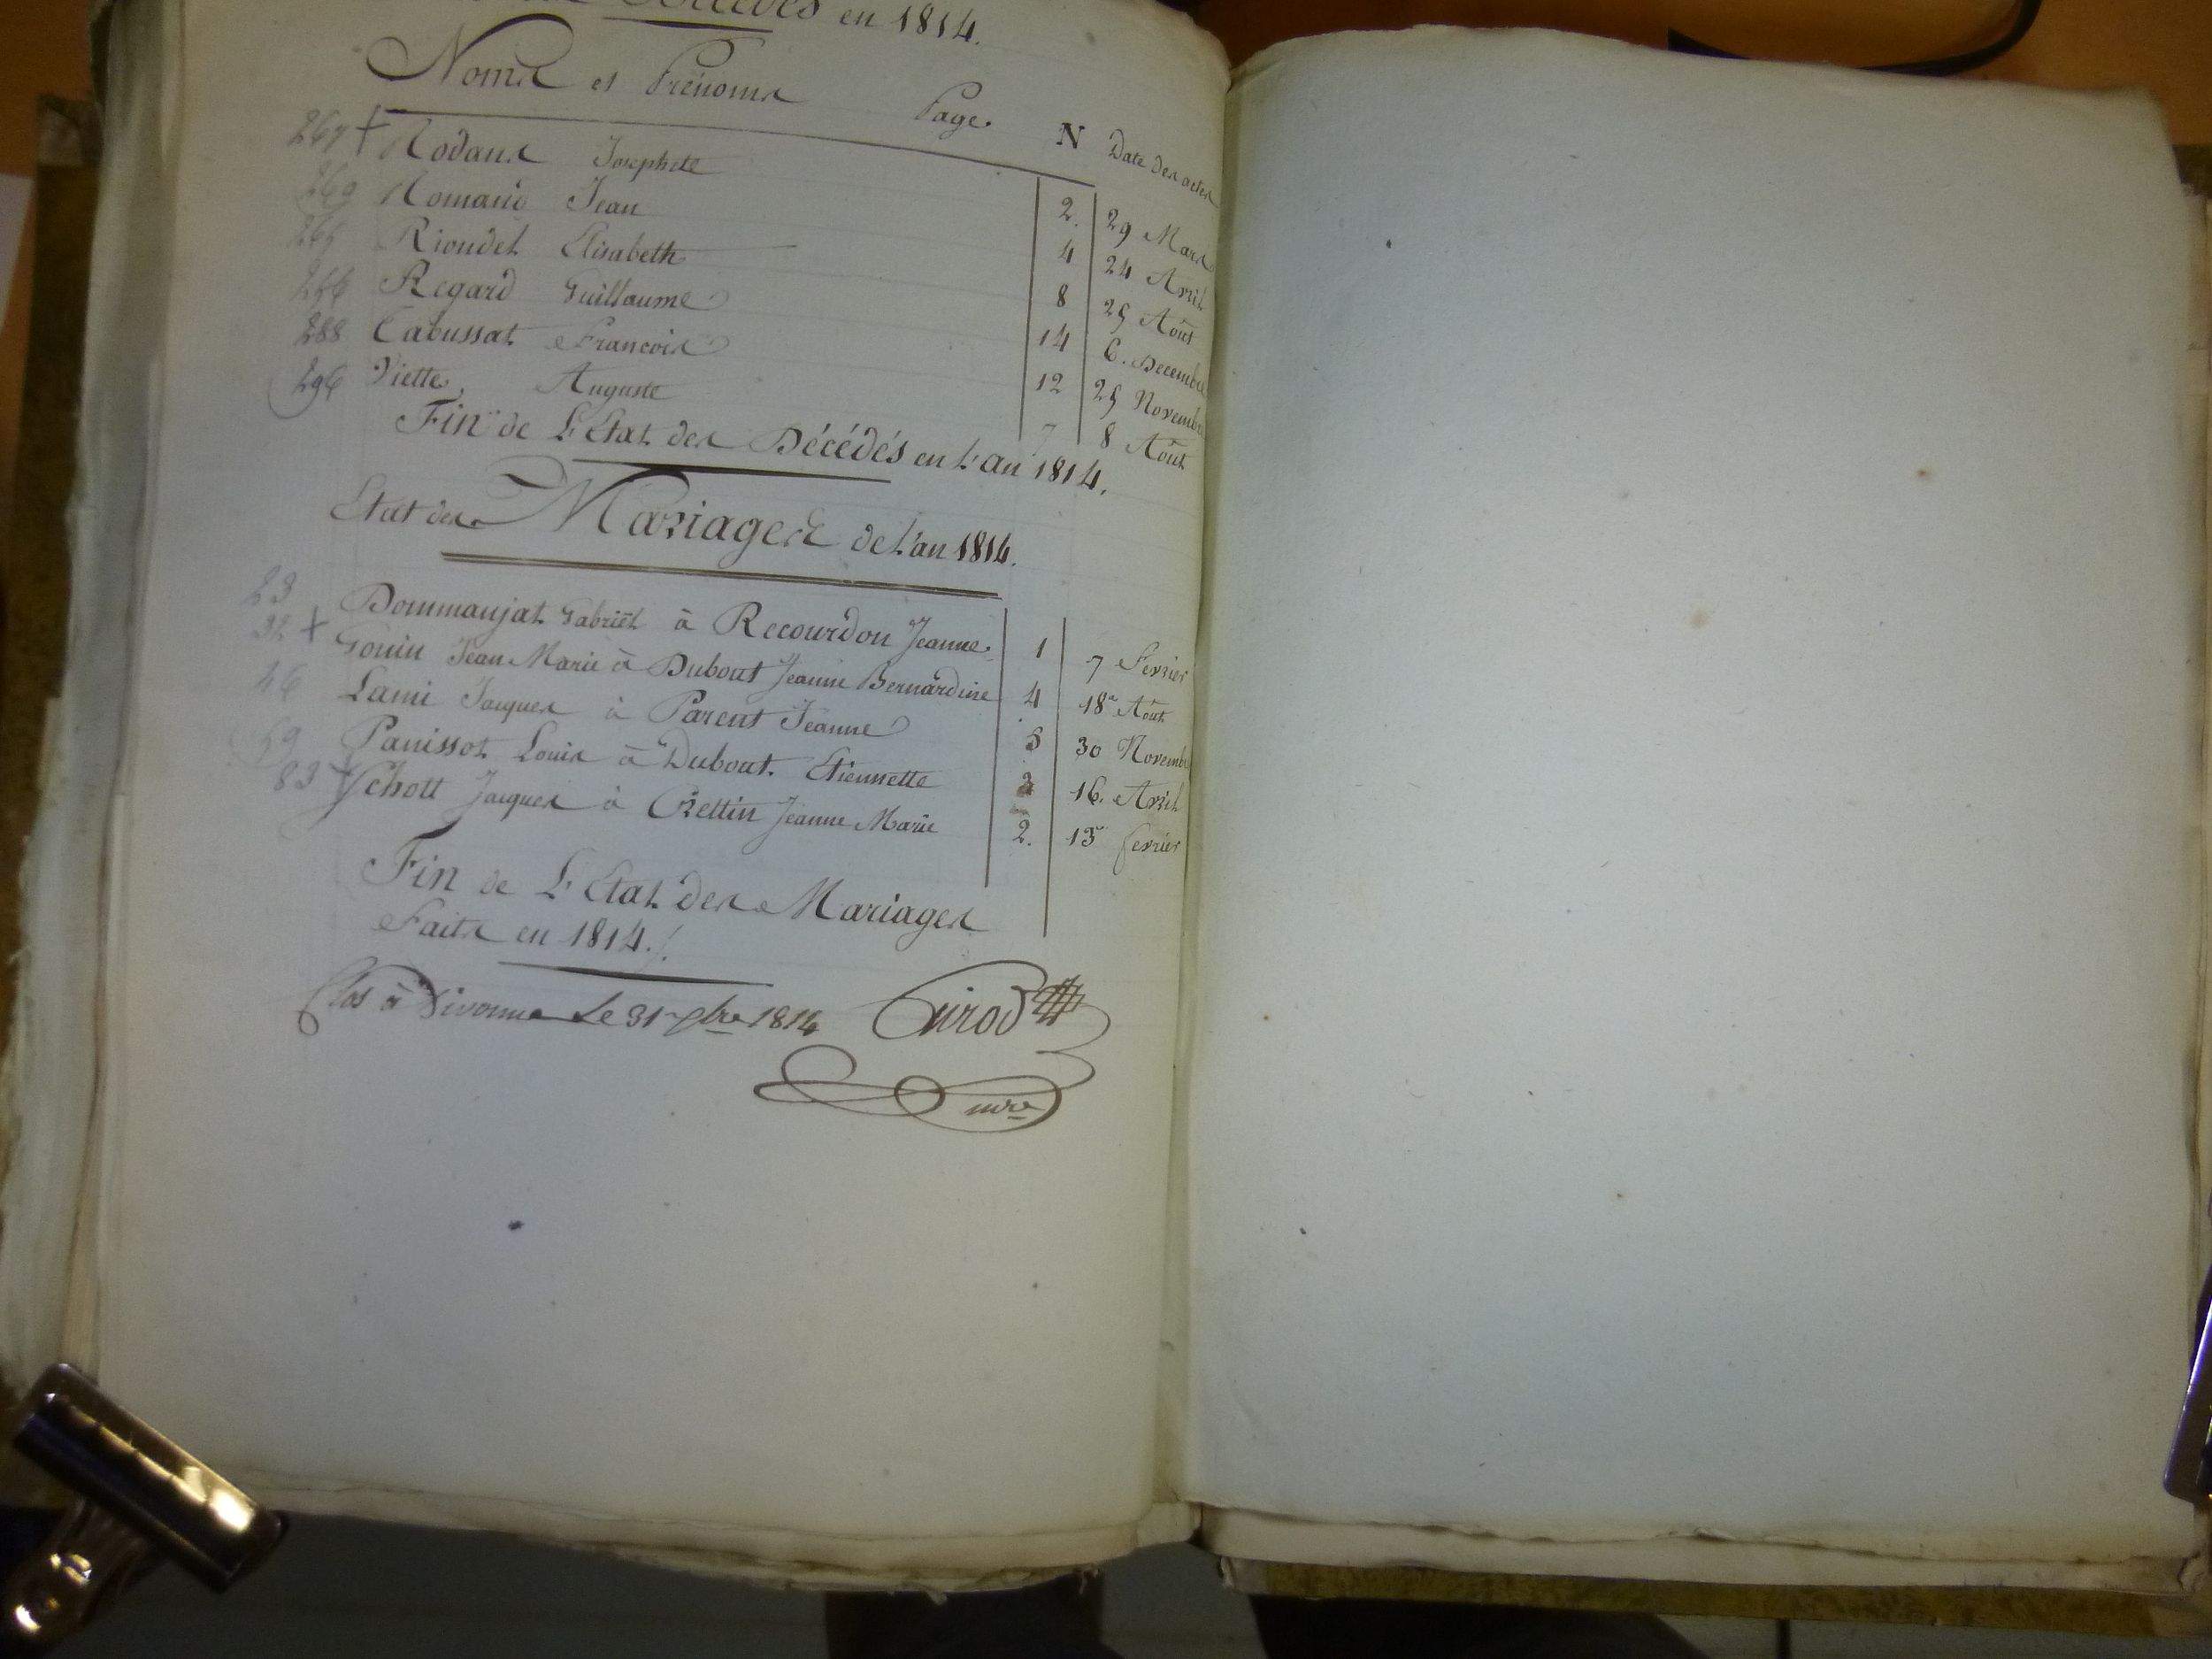 Décédés en 1814.
Noms et Prénoms Page. N Date des actes
267 + Rodans Josephete 2. 29 Mars
269 Romand Jean 4 24 Avril
265 Riondel Elisabeth 8 25 Août
256 Regard Guillaume 14 6. Decembre
288 Tabussat Francois 12 25 Novembre
296 Viette, Auguste 7 8 Août
Fin de L'Etat des Décédés en L'an 1814.
Etat des Mariages de L'an 1814.
23 Dommanjat Gabriël à Recourdon Jeanne. 1 7 Fevrier
32 + Gouin Jean Marie à Dubout Jeanne Bernardine 4 18 Août
46 Lami Jacques à Parent Jeanne 5 30 Novembre
59 Panissot Louis à Dubout. Etiennette 3 16. Avril
83 Schott Jacques à Crettin Jeanne Marie 2. 13 fevrier
Fin de L'Etat des Mariages
Faits en 1814./.
Clos à Divonne Le 31 Xbre 1814 Girod
mre